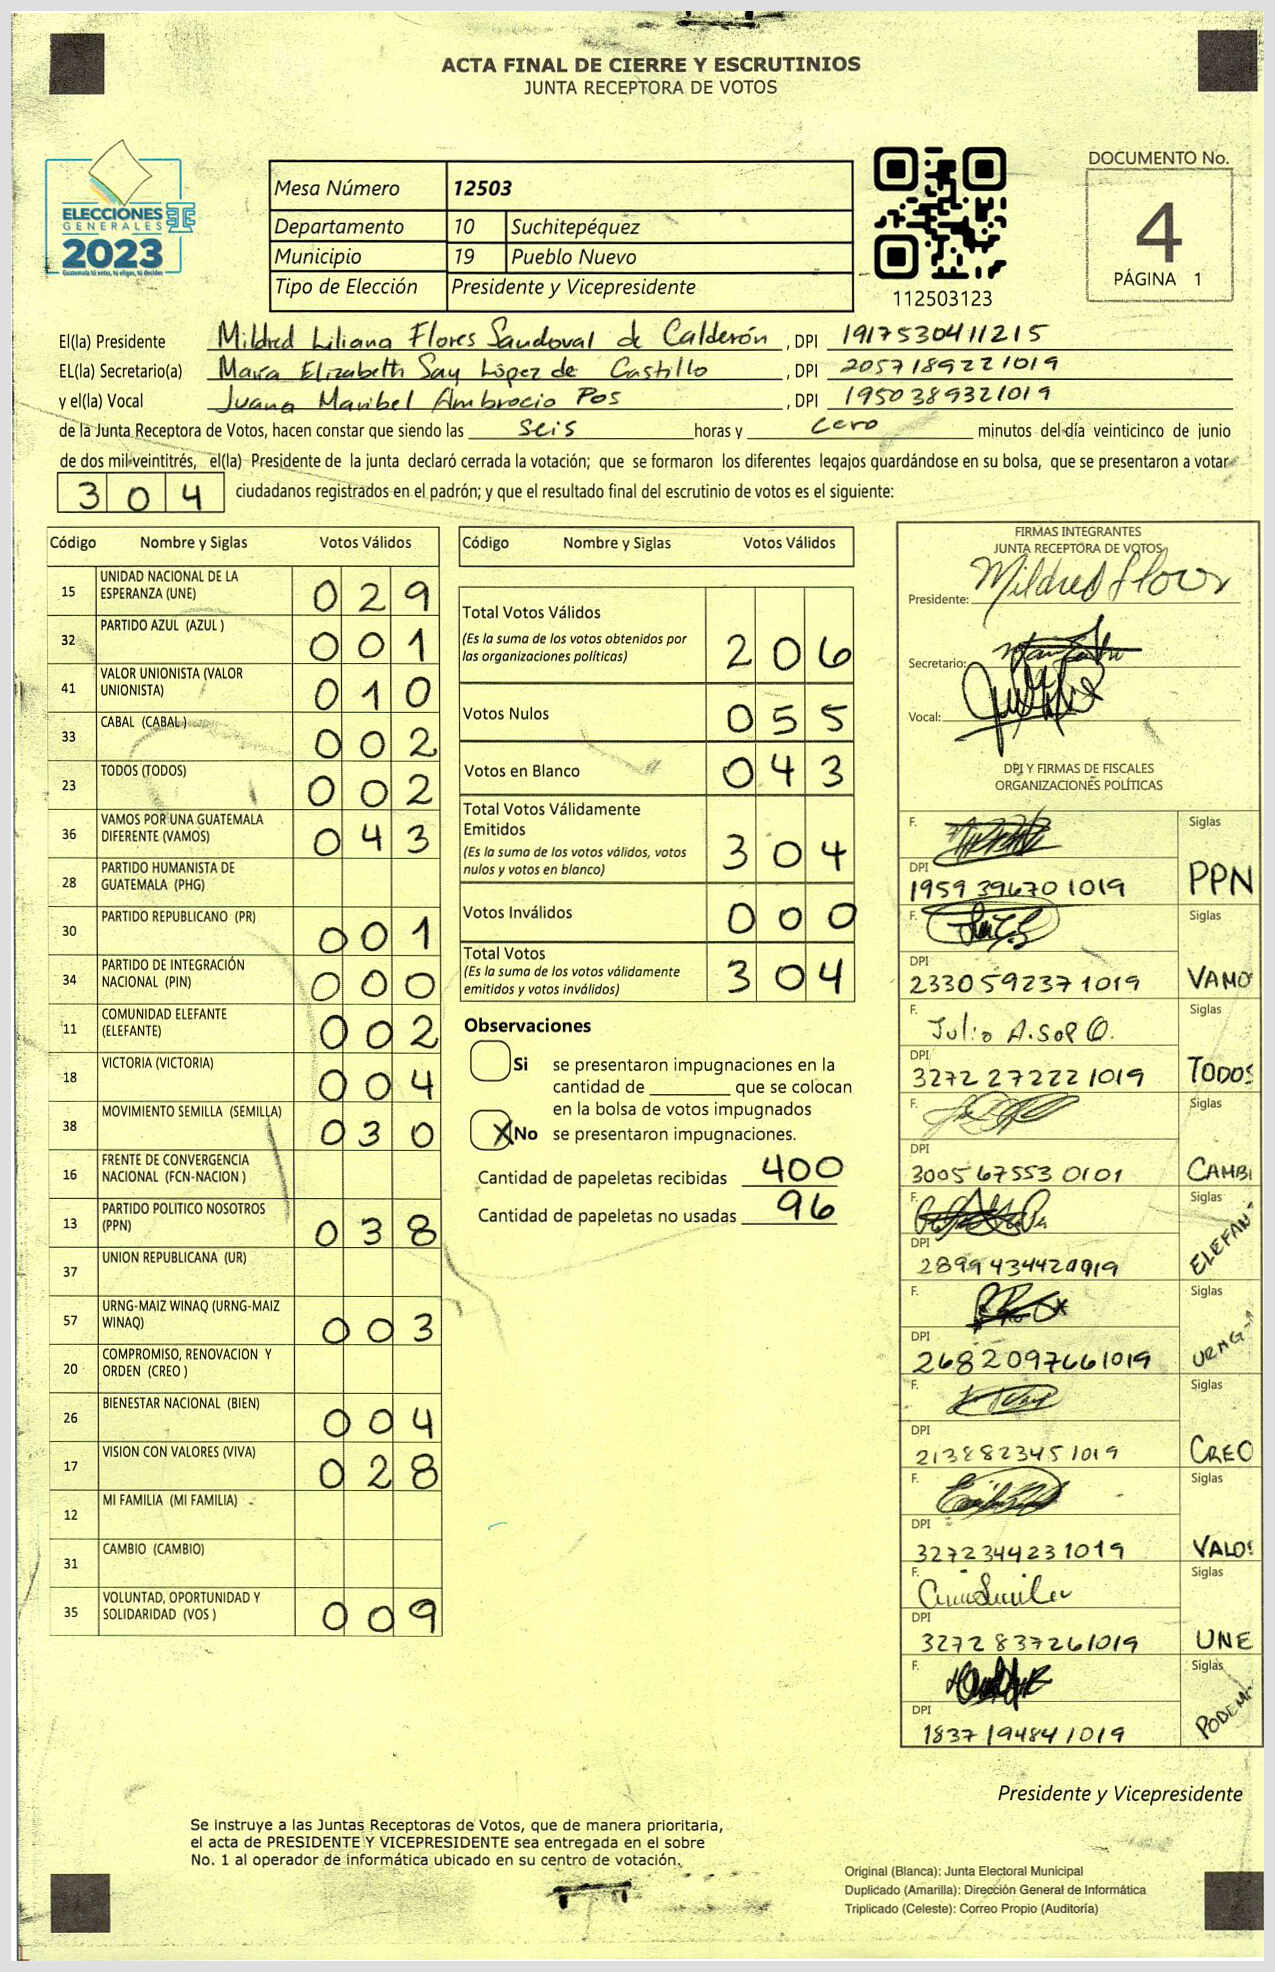 ACTA FINAL DE CIERRE Y ESCRUTINIOS
JUNTA RECEPTORA DE VOTOS
ELECCIONES
GENERALES
2023
Guatemala tú votas, tú eliges, tú decides
Mesa Número 12503
Departamento 10 Suchitepéquez
Municipio 19 Pueblo Nuevo
Tipo de Elección Presidente y Vicepresidente
112503123
DOCUMENTO No.
4
PÁGINA 1
El(la) Presidente Mildred Liliana Flores Sandoval de Calderón, DPI 1917530411215
EL(la) Secretario(a) Maira Elizabeth Say López de Castillo, DPI 2057189221019
y el(la) Vocal Juana Maribel Ambrocio Pos, DPI 1950389321019
de la Junta Receptora de Votos, hacen constar que siendo las seis horas y cero minutos del día veinticinco de junio
de dos mil veintitrés, el(la) Presidente de la junta declaró cerrada la votación; que se formaron los diferentes legajos guardándose en su bolsa, que se presentaron a votar
304 ciudadanos registrados en el padrón; y que el resultado final del escrutinio de votos es el siguiente:
Código Nombre y Siglas Votos Válidos
15 UNIDAD NACIONAL DE LA ESPERANZA (UNE) 029
32 PARTIDO AZUL (AZUL ) 001
41 VALOR UNIONISTA (VALOR UNIONISTA) 010
33 CABAL (CABAL ) 002
23 TODOS (TODOS) 002
36 VAMOS POR UNA GUATEMALA DIFERENTE (VAMOS) 043
28 PARTIDO HUMANISTA DE GUATEMALA (PHG)
30 PARTIDO REPUBLICANO (PR) 001
34 PARTIDO DE INTEGRACIÓN NACIONAL (PIN) 000
11 COMUNIDAD ELEFANTE (ELEFANTE) 002
18 VICTORIA (VICTORIA) 004
38 MOVIMIENTO SEMILLA (SEMILLA) 030
16 FRENTE DE CONVERGENCIA NACIONAL (FCN-NACION )
13 PARTIDO POLITICO NOSOTROS (PPN) 038
37 UNION REPUBLICANA (UR)
57 URNG-MAIZ WINAQ (URNG-MAIZ WINAQ) 003
20 COMPROMISO, RENOVACION Y ORDEN (CREO )
26 BIENESTAR NACIONAL (BIEN) 004
17 VISION CON VALORES (VIVA) 028
12 MI FAMILIA (MI FAMILIA)
31 CAMBIO (CAMBIO)
35 VOLUNTAD, OPORTUNIDAD Y SOLIDARIDAD (VOS ) 009
Código Nombre y Siglas Votos Válidos
Total Votos Válidos
(Es la suma de los votos obtenidos por
las organizaciones políticas) 206
Votos Nulos 055
Votos en Blanco 043
Total Votos Válidamente
Emitidos
(Es la suma de los votos válidos, votos
nulos y votos en blanco) 304
Votos Inválidos 000
Total Votos
(Es la suma de los votos válidamente
emitidos y votos inválidos) 304
Observaciones
Si se presentaron impugnaciones en la
cantidad de ________ que se colocan
en la bolsa de votos impugnados
X No se presentaron impugnaciones.
Cantidad de papeletas recibidas 400
Cantidad de papeletas no usadas 96
FIRMAS INTEGRANTES
JUNTA RECEPTORA DE VOTOS
Presidente: Mildred Flores
Secretario:
Vocal:
DPI Y FIRMAS DE FISCALES
ORGANIZACIONES POLÍTICAS
F. Siglas
DPI
1959396701019 PPN
F. Siglas
DPI
2330592371019 VAMO
F. Julio A. Sop O. Siglas
DPI
3272272221019 TODOS
F. Siglas
DPI
3005675530101 CAMBI
F. Siglas
DPI
2899434420919 ELEFAN
F. Siglas
DPI
2682097661019 URNG-
F. Siglas
DPI
2138823451019 CREO
F. Siglas
DPI
3272344231019 VALO
F. Siglas
DPI
3272837261019 UNE
F. Siglas
DPI
1837194841019 PODEM
Presidente y Vicepresidente
Se instruye a las Juntas Receptoras de Votos, que de manera prioritaria,
el acta de PRESIDENTE Y VICEPRESIDENTE sea entregada en el sobre
No. 1 al operador de informática ubicado en su centro de votación.
Original (Blanca): Junta Electoral Municipal
Duplicado (Amarilla): Dirección General de Informática
Triplicado (Celeste): Correo Propio (Auditoría)